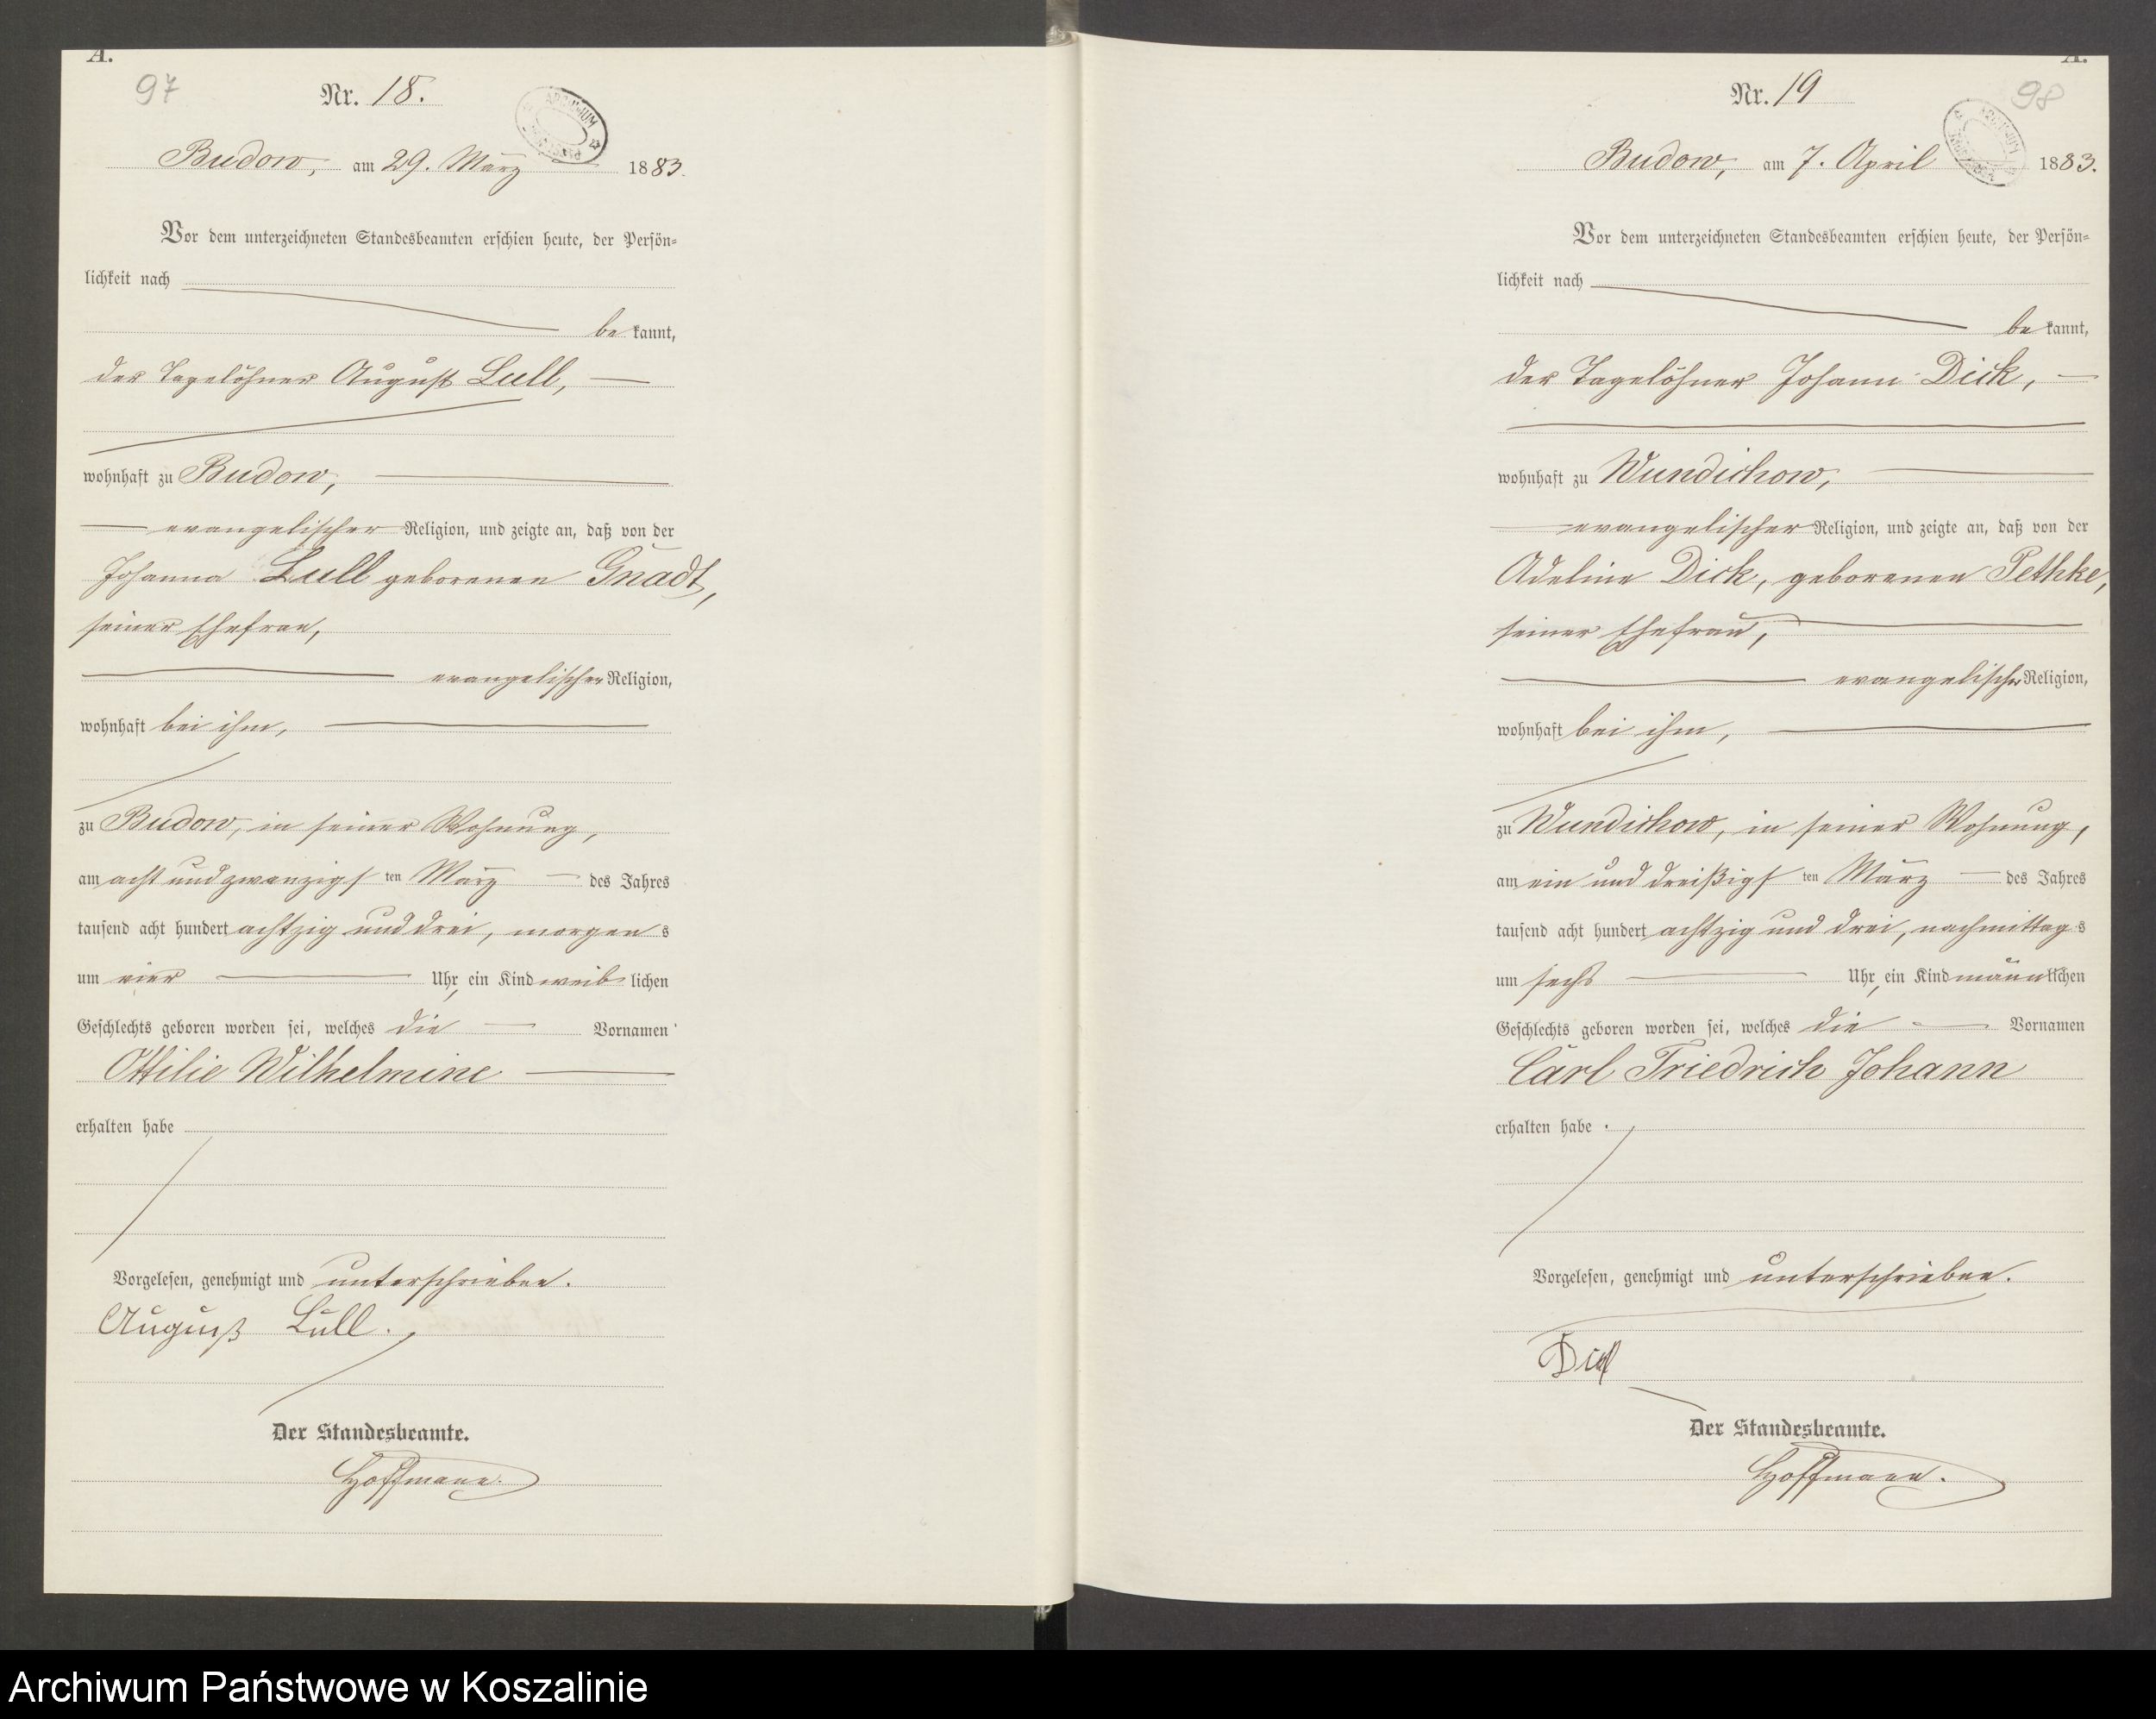 A.
97
Nr. 18.
Budow, am 29. März 1883.
Vor dem unterzeichneten Standesbeamten erschien heute, der Persön-
lichkeit nach
be kannt,
der Tagelöhner August Lull,
wohnhaft zu Budow,
evangelischer Religion, und zeigte an, daß von der
Johanna Lull geborenen Gnadt,
seiner Ehefrau,
evangelischer Religion,
wohnhaft bei ihm,
zu Budow, in seiner Wohnung,
am acht und zwanzigs ten März des Jahres
tausend acht hundert achtzig und drei, morgen s
um vier Uhr, ein Kind weib lichen
Geschlechts geboren worden sei, welches die Vornamen
Ottilie Wilhelmine
erhalten habe
Vorgelesen, genehmigt und unterschrieben.
August Lull.
Der Standesbeamte.
Hoffmann.
A.
98
Nr. 19
Budow, am 7. April 1883.
Vor dem unterzeichneten Standesbeamten erschien heute, der Persön-
lichkeit nach
be kannt,
der Tagelöhner Johann Dick,
wohnhaft zu Wundichow,
evangelischer Religion, und zeigte an, daß von der
Adeline Dick, geborenen Pethke,
seiner Ehefrau,
evangelischer Religion,
wohnhaft bei ihm,
zu Wundichow, in seiner Wohnung,
am ein und dreißigs ten März des Jahres
tausend acht hundert achtzig und drei, nachmittag s
um sechs Uhr, ein Kind männlichen
Geschlechts geboren worden sei, welches die Vornamen
Carl Friedrich Johann
erhalten habe.
Vorgelesen, genehmigt und unterschrieben.
Dick
Der Standesbeamte.
Hoffmann.
Archiwum Państwowe w Koszalinie